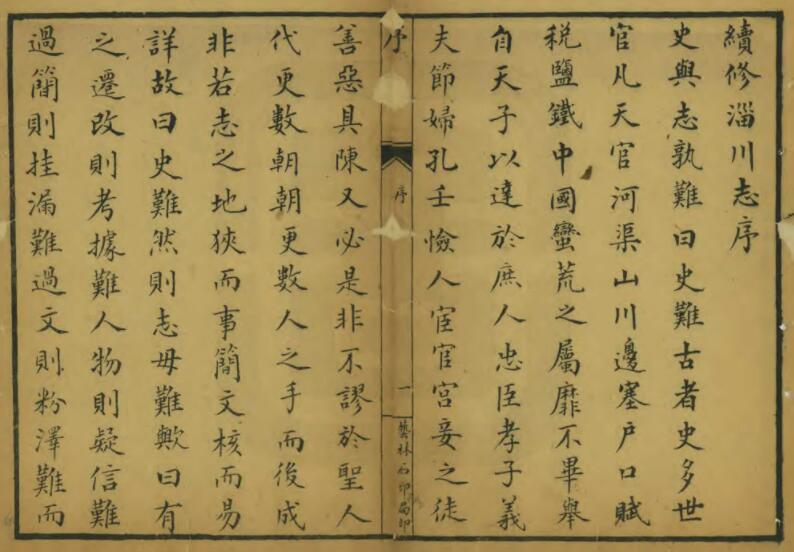 續修淄川志序
史與志孰難曰史難古者史多世
官凡天官河渠山川邊塞戶口賦
稅鹽鐵中國蠻荒之屬靡不畢舉
自天子以達於庶人忠臣孝子義
夫節婦孔壬憸人宦官宮妾之徒
序
序
一
藝林石印局印
善惡具陳又必是非不謬於聖人
代更數朝朝更數人之手而後成
非若志之地狹而事簡文核而易
詳故曰史難然則志毋難歟曰有
之遷改則考據難人物則疑信難
過簡則挂漏難過文則粉澤難而